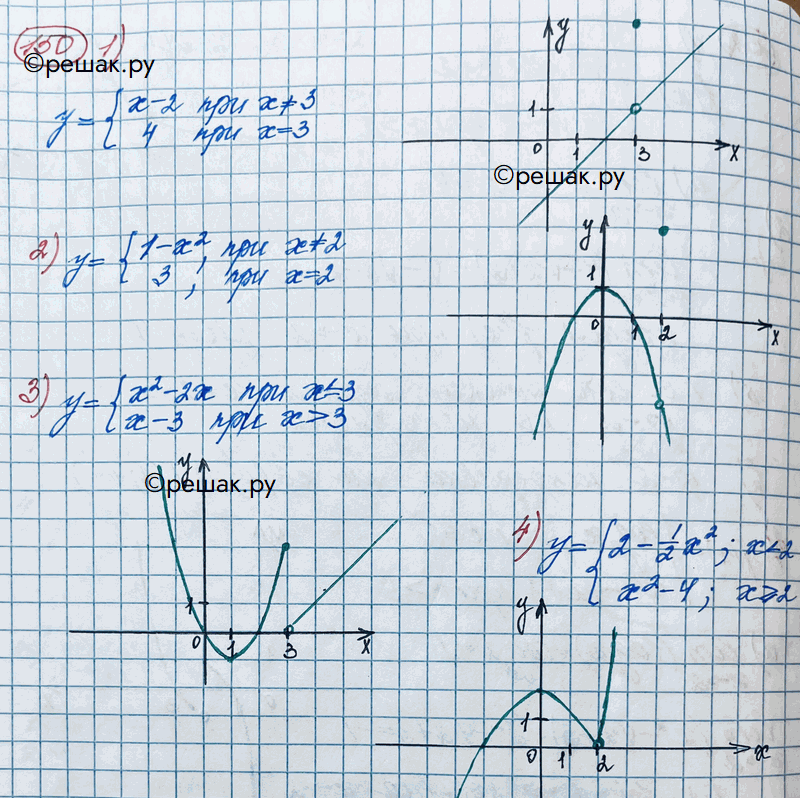 150 1)
©решак.ру
y = { x-2 при x≠3
4 при x=3
y
1
0 1 3 x
©решак.ру
2) y = { 1-x², при x≠2
3, при x=2
y
1
0 1 2 x
3) y = { x²-2x при x≤3
x-3 при x>3
y
©решак.ру
1
0 1 3 x
4) y = { 2-½x²; x<2
x²-4; x⩾2
y
1
0 1 2 x